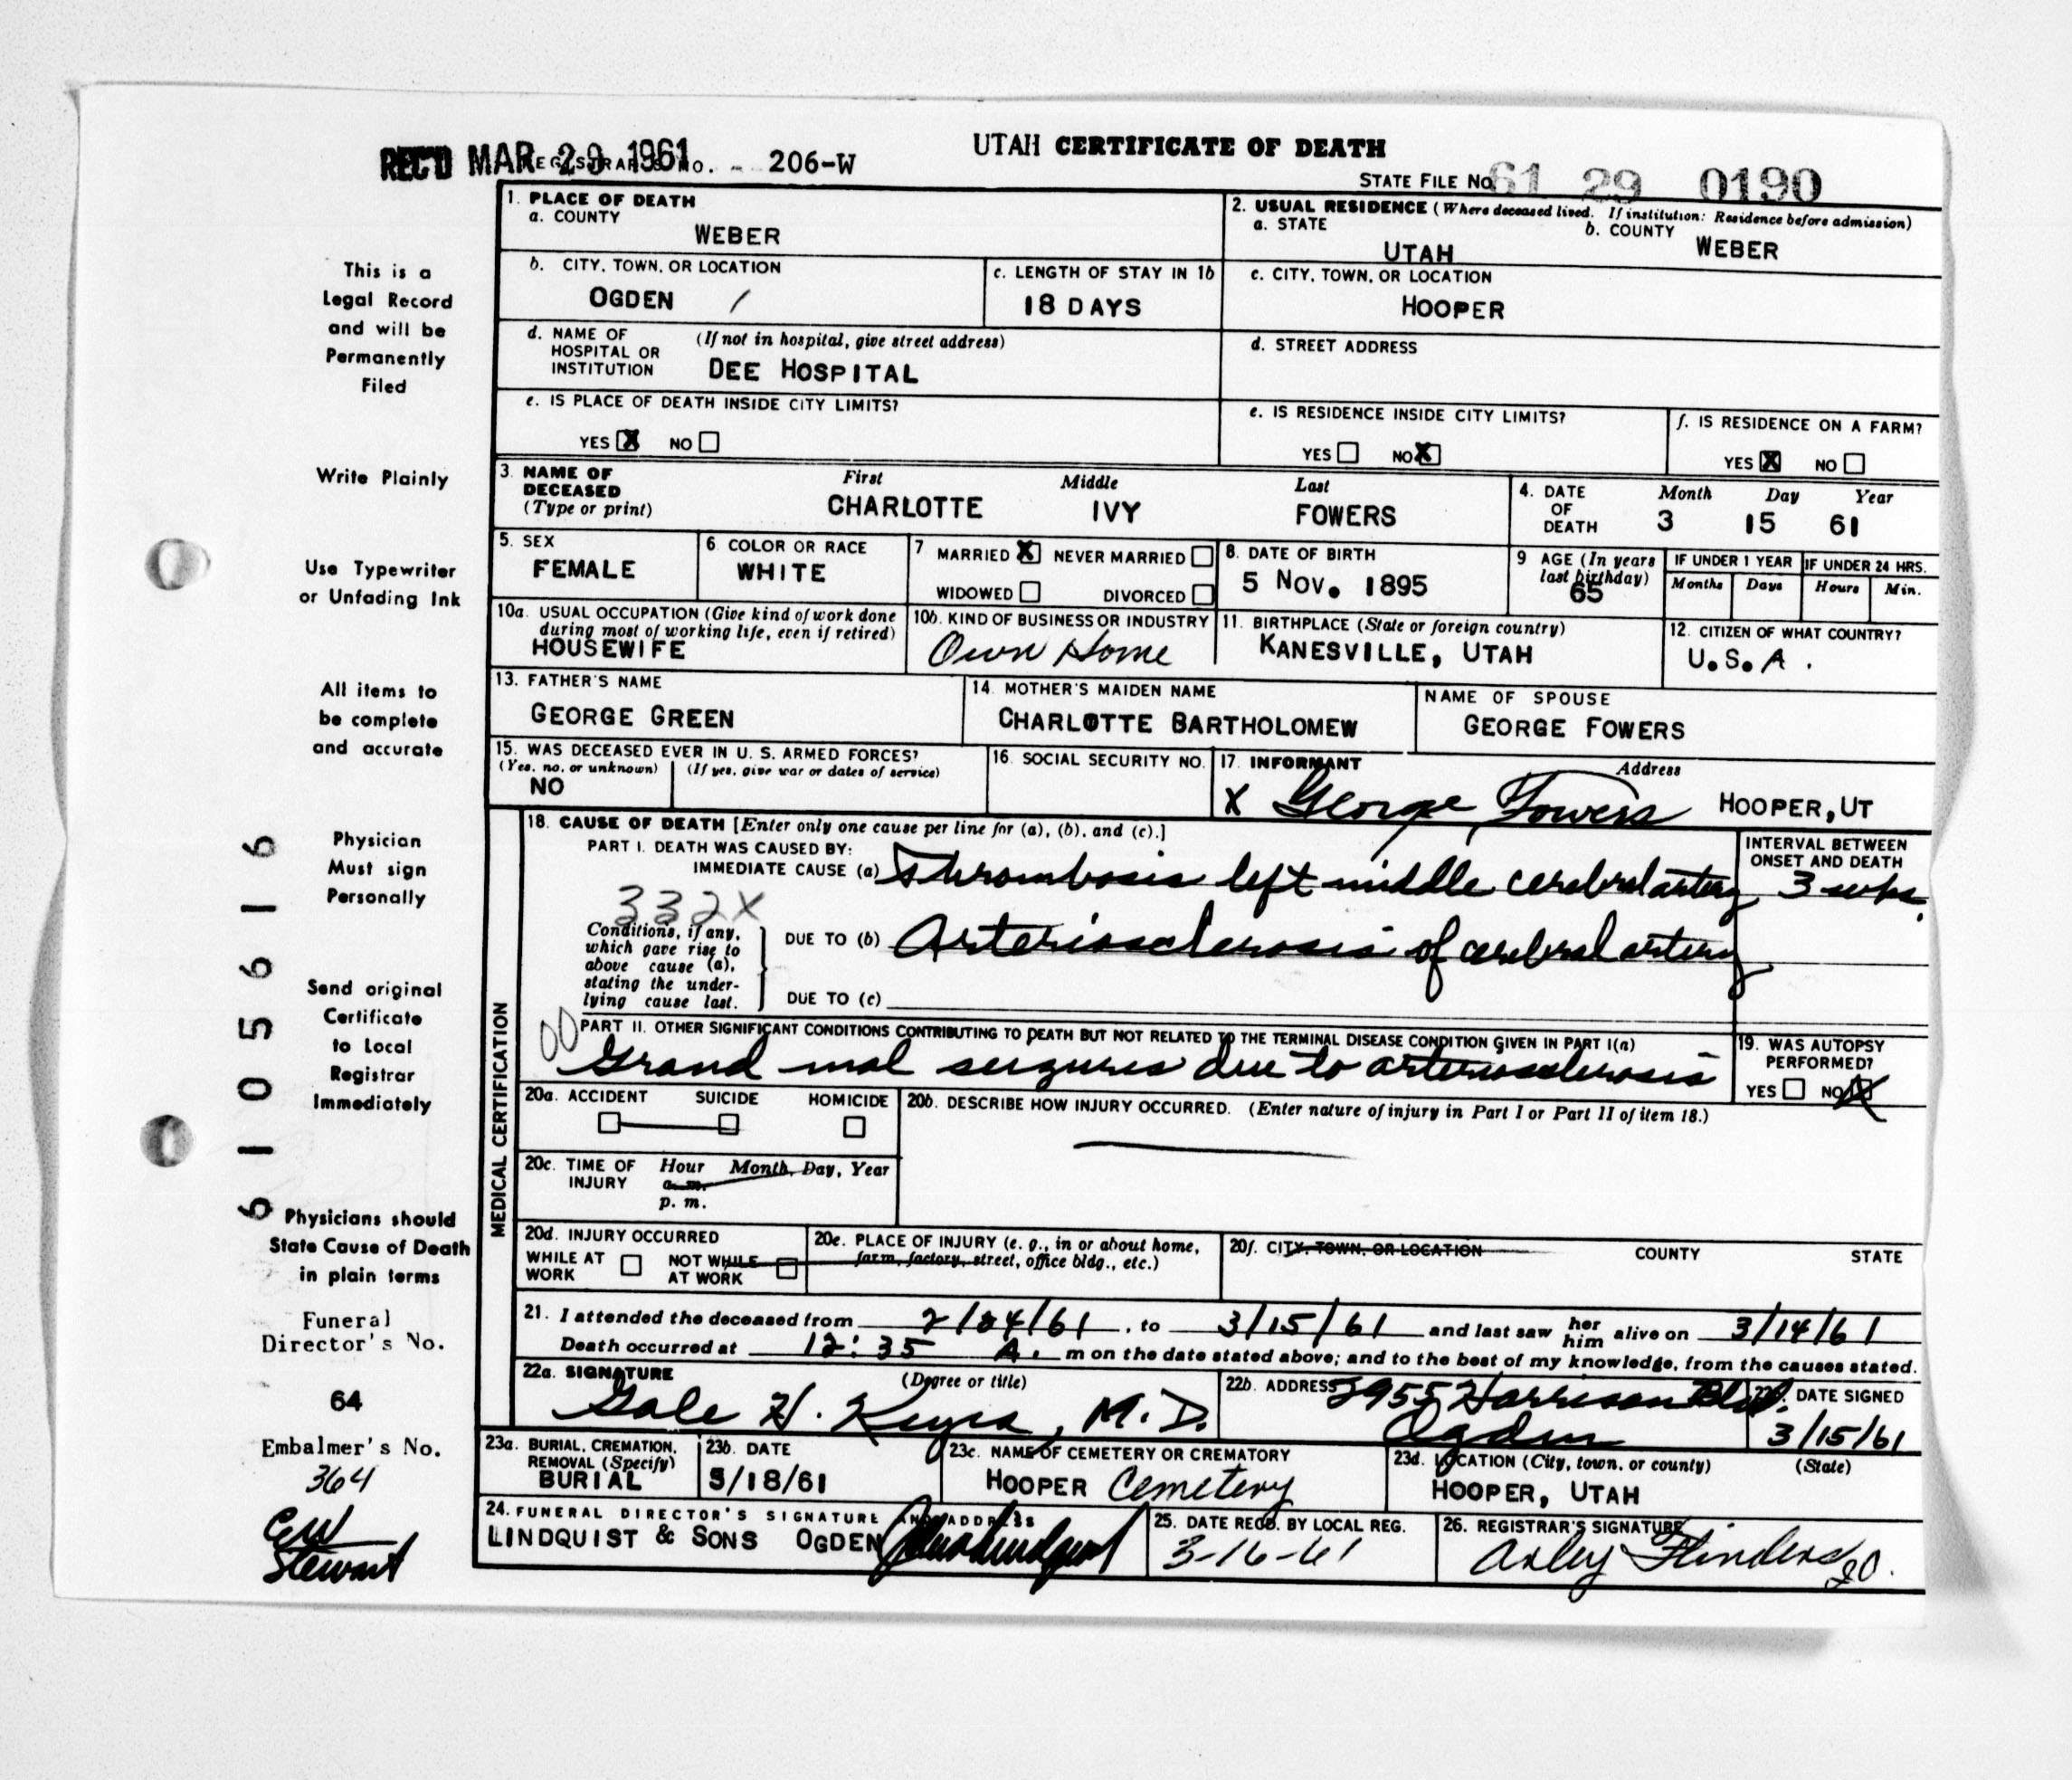 REC'D MAR 20 1961 REGISTRAR'S No. - 206-W
UTAH CERTIFICATE OF DEATH
STATE FILE No. 61 29 0190
1. PLACE OF DEATH
a. COUNTY
WEBER
2. USUAL RESIDENCE (Where deceased lived. If institution: Residence before admission)
a. STATE
UTAH
b. COUNTY
WEBER
b. CITY, TOWN, OR LOCATION
OGDEN /
c. LENGTH OF STAY IN 1b
18 DAYS
c. CITY, TOWN, OR LOCATION
HOOPER
d. NAME OF HOSPITAL OR INSTITUTION
(If not in hospital, give street address)
DEE HOSPITAL
d. STREET ADDRESS
e. IS PLACE OF DEATH INSIDE CITY LIMITS?
YES X NO
e. IS RESIDENCE INSIDE CITY LIMITS?
YES NO X
f. IS RESIDENCE ON A FARM?
YES X NO
3. NAME OF DECEASED
(Type or print)
First Middle Last
CHARLOTTE IVY FOWERS
4. DATE OF DEATH
Month Day Year
3 15 61
5. SEX
FEMALE
6 COLOR OR RACE
WHITE
7 MARRIED X NEVER MARRIED
WIDOWED DIVORCED
8. DATE OF BIRTH
5 Nov. 1895
9 AGE (In years last birthday)
65
IF UNDER 1 YEAR
Months Days
IF UNDER 24 HRS.
Hours Min.
10a. USUAL OCCUPATION (Give kind of work done during most of working life, even if retired)
HOUSEWIFE
10b. KIND OF BUSINESS OR INDUSTRY
Own Home
11. BIRTHPLACE (State or foreign country)
KANESVILLE, UTAH
12. CITIZEN OF WHAT COUNTRY?
U.S.A.
13. FATHER'S NAME
GEORGE GREEN
14. MOTHER'S MAIDEN NAME
CHARLOTTE BARTHOLOMEW
NAME OF SPOUSE
GEORGE FOWERS
15. WAS DECEASED EVER IN U. S. ARMED FORCES?
(Yes, no, or unknown) (If yes, give war or dates of service)
NO
16. SOCIAL SECURITY NO.
17. INFORMANT Address
X George Fowers HOOPER, UT
MEDICAL CERTIFICATION
18. CAUSE OF DEATH [Enter only one cause per line for (a), (b), and (c).]
PART I. DEATH WAS CAUSED BY:
IMMEDIATE CAUSE (a) Thrombosis left middle cerebral artery
INTERVAL BETWEEN ONSET AND DEATH
3 wks.
332X
Conditions, if any, which gave rise to above cause (a), stating the underlying cause last.
DUE TO (b) Arteriosclerosis of cerebral artery
DUE TO (c)
00
PART II. OTHER SIGNIFICANT CONDITIONS CONTRIBUTING TO DEATH BUT NOT RELATED TO THE TERMINAL DISEASE CONDITION GIVEN IN PART I(a)
Grand mal seizures due to arteriosclerosis
19. WAS AUTOPSY PERFORMED?
YES NO X
20a. ACCIDENT SUICIDE HOMICIDE
20b. DESCRIBE HOW INJURY OCCURRED. (Enter nature of injury in Part I or Part II of item 18.)
20c. TIME OF INJURY
Hour Month, Day, Year
a. m.
p. m.
20d. INJURY OCCURRED
WHILE AT WORK
NOT WHILE AT WORK
20e. PLACE OF INJURY (e. g., in or about home, farm, factory, street, office bldg., etc.)
20f. CITY, TOWN, OR LOCATION COUNTY STATE
21. I attended the deceased from 2/24/61, to 3/15/61 and last saw her him alive on 3/14/61
Death occurred at 12:35 A. m on the date stated above; and to the best of my knowledge, from the causes stated.
22a. SIGNATURE (Degree or title)
Gale H. Keyes, M.D.
22b. ADDRESS
3955 Harrison Blvd.
Ogden
22c. DATE SIGNED
3/15/61
23a. BURIAL, CREMATION, REMOVAL (Specify)
BURIAL
23b. DATE
3/18/61
23c. NAME OF CEMETERY OR CREMATORY
HOOPER Cemetery
23d. LOCATION (City, town, or county) (State)
HOOPER, UTAH
24. FUNERAL DIRECTOR'S SIGNATURE AND ADDRESS
LINDQUIST & SONS OGDEN
25. DATE RECD. BY LOCAL REG.
3-16-61
26. REGISTRAR'S SIGNATURE
Arley Flinders
This is a
Legal Record
and will be
Permanently
Filed
Write Plainly
Use Typewriter
or Unfading Ink
All items to
be complete
and accurate
Physician
Must sign
Personally
Send original
Certificate
to Local
Registrar
Immediately
Physicians should
State Cause of Death
in plain terms
Funeral
Director's No.
64
Embalmer's No.
364
EW
Stewart
6105616